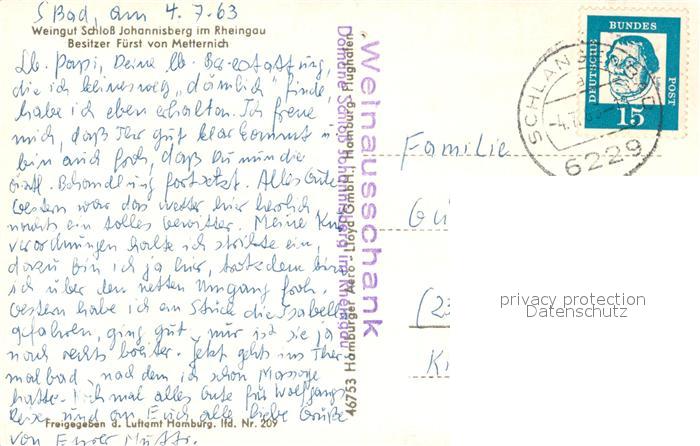 SBad, am 4.7.63
Weingut Schloß Johannisberg im Rheingau
Besitzer Fürst von Metternich
Lb. Papi, Deine lb. Berestattung,
die ich keineswegs „dämlich" finde,
habe ich eben erhalten. Ich freue
mich, daß Ihr gut klarkommt u.
bin auch froh, daß Du nun die
Behandlung fortsetzt. Alles Gute
Gestern war das Wetter hier herrlich
nachts ein tolles Gewitter. Meine Kur
verordnungen halte ich strikte ein,
dazu bin ich ja hier, trotzdem bin
ich über den netten Umgang froh.
Gestern habe ich ein Stück die Isabella
gefahren, ging gut, nur ist sie ja
noch rechts breiter. Jetzt gehts ins Ther
malbad, nachdem ich schon Massage
hatte. Nochmal alles Gute für Wolfgangs
Reise und an Euch alle liebe Grüße
von Eurer Mutti.
Freigegeben d. Luftamt Hamburg. lfd. Nr. 209
46753 Hamburger Aero-Lloyd GmbH., Hamburg-Flughafen
Weinausschank
Domäne Schloß Johannisberg im Rheingau
DEUTSCHE
BUNDES
POST
15
SCHLANGENBAD
6229
Familie
Gü
(23
K
privacy protection
Datenschutz